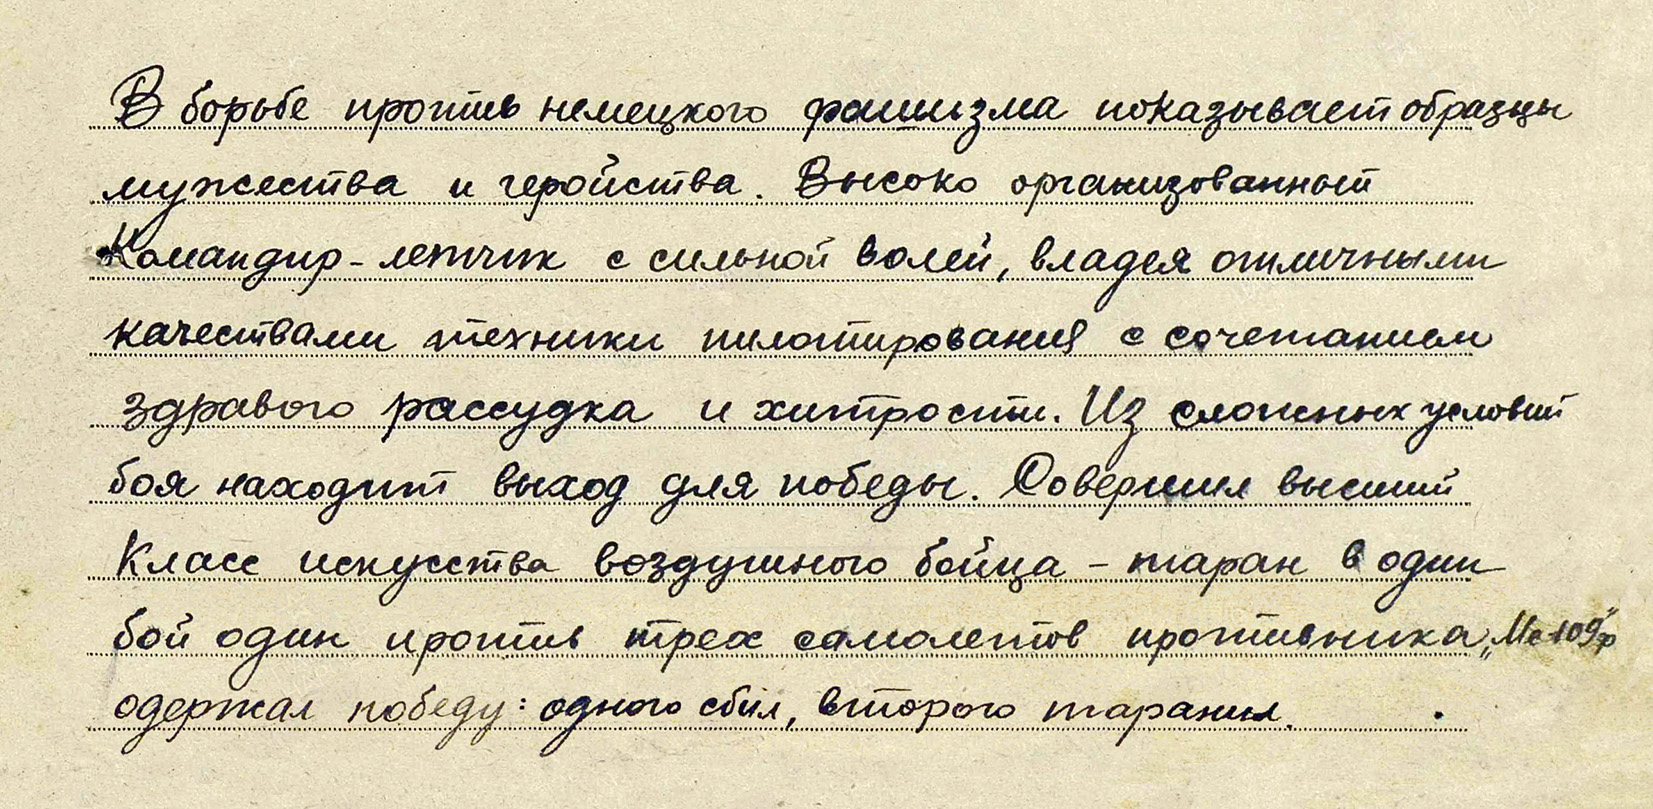 В борьбе против немецкого фашизма показывает образцы
мужества и геройства. Высоко организованный
Командир-летчик с сильной волей, владея отличными
качествами техники пилотирования с сочетанием
здравого рассудка и хитрости. Из сложных условий
боя находит выход для победы. Совершил высший
Класс искусства воздушного бойца - таран в один
бой один против трех самолетов противника „Ме-109"ф
одержал победу: одного сбил, второго таранил.